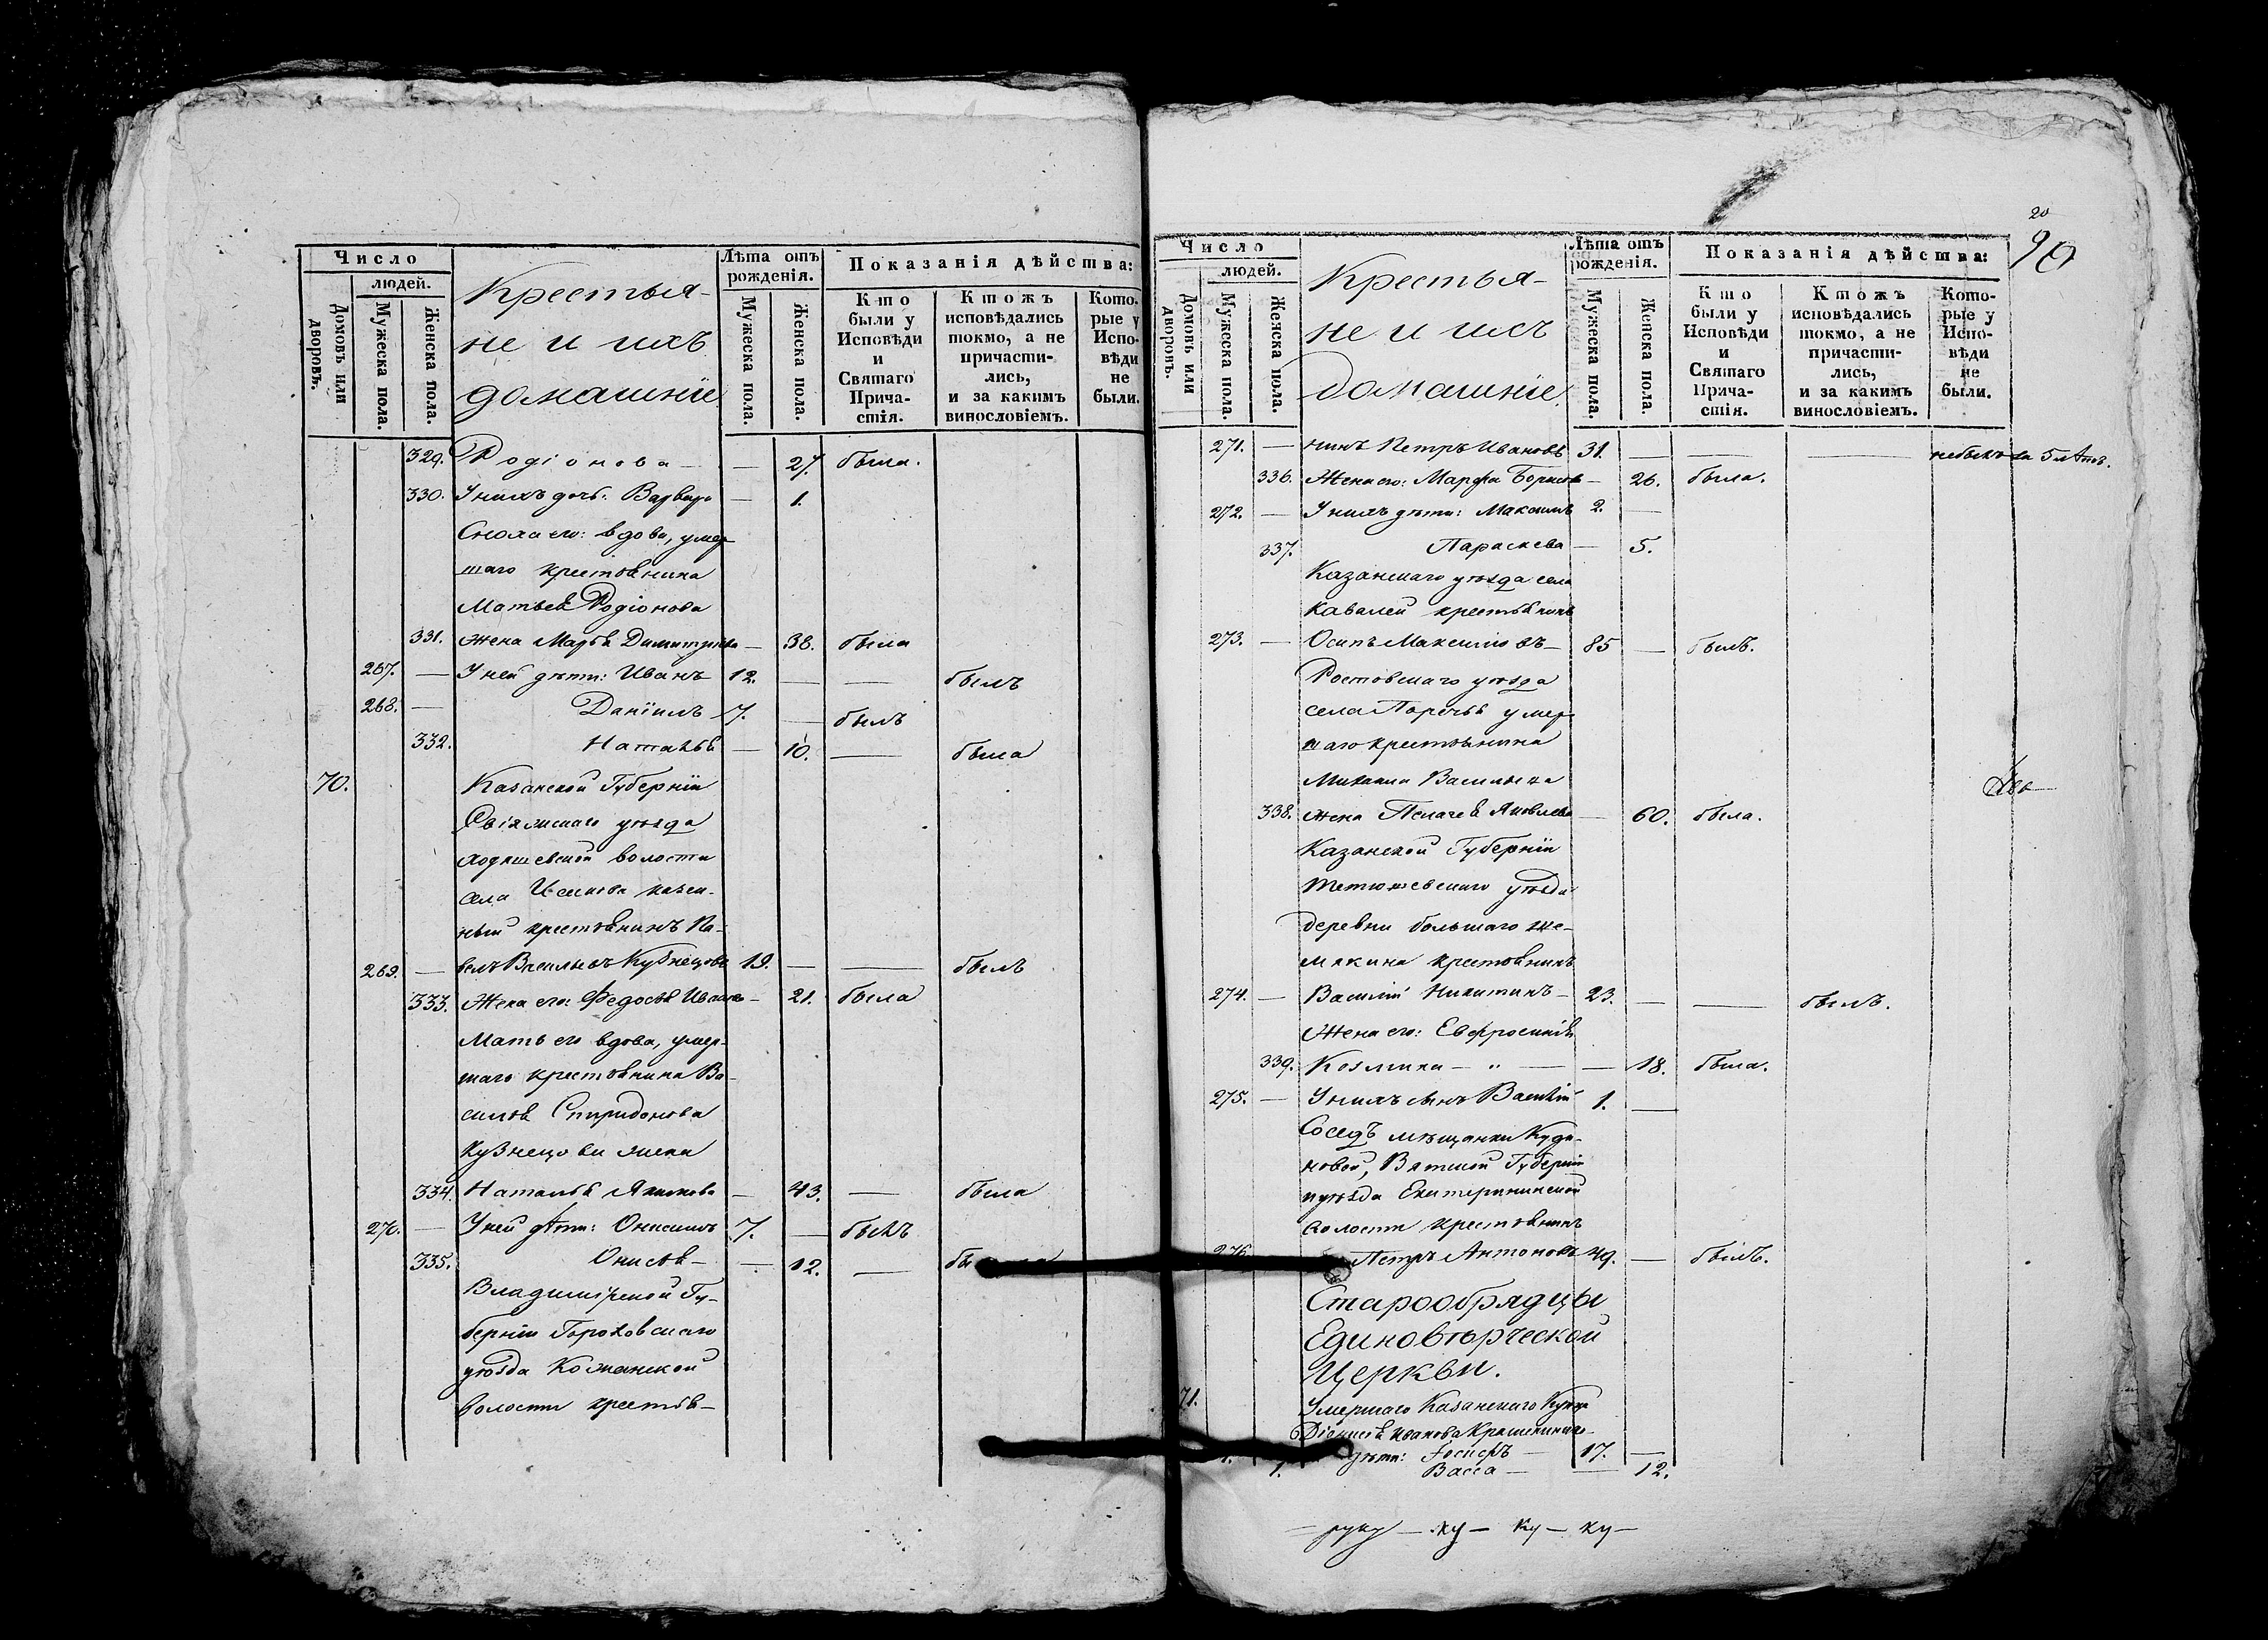 Число
людей.
Домовъ или дворовъ.
Мужеска пола.
Женска пола.
Крестья-
не и ихъ
домашніе
Лѣта отъ рожденія.
Мужеска пола.
Женска пола.
Показанія дѣйства:
Кто были у Исповѣди и Святаго Прича-стія.
Ктожъ исповѣдались токмо, а не причасти-лись, и за какимъ винословіемъ.
Кото-рые у Испо-вѣди не были.
329. Родіонова — — 27. была.
330. У нихъ дочь: Варвара — 1.
Сноха его: вдова, умер
шаго крестьянина
Матвея Родіонова
331. жена Марья Димитріева — 38. была
267. — У ней дѣти: Иванъ 12. — — былъ
268. — Даніилъ 7. — былъ
332. Наталья — 10. — была
70. Казанской Губерніи
Свіяжскаго уѣзда
волости
села казен-
ный крестьянинъ Па-
269. — велъ Васильевъ Кузнецовъ 19. — — былъ
333. Жена его: Федосья Иванова — 21. была
Мать его вдова, умер-
шаго крестьянина Ва-
силья Спиридонова
Кузнецова жена
334. Наталья Якимова — 43. — была
270. — У ней дѣти: Онисимъ 7. — былъ
335. Онисья — — 12. —
Владимірской Гу-
берніи Гороховскаго
уѣзда Кожанской
волости крестья-
20
90
Число
людей.
Домовъ или дворовъ.
Мужеска пола.
Женска пола.
Крестья-
не и ихъ
домашніе
Лѣта отъ рожденія.
Мужеска пола.
Женска пола.
Показанія дѣйства:
Кто были у Исповѣди и Святаго Прича-стія.
Ктожъ исповѣдались токмо, а не причасти-лись, и за какимъ винословіемъ.
Кото-рые у Испо-вѣди не были.
271. — нинъ Петръ Ивановъ 31. — — — небылъ за 5 лѣтъ.
336. Жена его: Марфа Борисова — 26. была.
272. — У нихъ дѣти: Максимъ 2. —
337. Параскева — 5.
Казанскаго уѣзда села
Кавалей крестьянинъ
273. — Осипъ Максимовъ — 85 — былъ.
Ростовскаго уѣзда
села Поречья умер
шаго крестьянина
Михаила Васильева
338. жена Пелагея Яковлева — 60. была.
Казанской Губерніи
Тетюшевскаго уѣзда
деревни большаго Ше-
мякина крестьянинъ
274. — Василій Никитинъ — 23. — — былъ.
Жена его: Евфросинья
339. Козмина — " — — 18. была.
275. — У нихъ сынъ Василій 1. —
Соседъ мѣщанки Куди-
новой, Вятской Губерніи
и уѣзда Екатерининской
волости крестьянинъ
276. Петръ Антоновъ 49. — былъ.
Старообрядцы
Единовѣрческой
Церкви.
71. Умершаго Казанскаго Купца
Діонисія Иванова
дѣти: Іосифъ — 17. —
1. Васса — — 12.
— руку — ку — ку — ку —